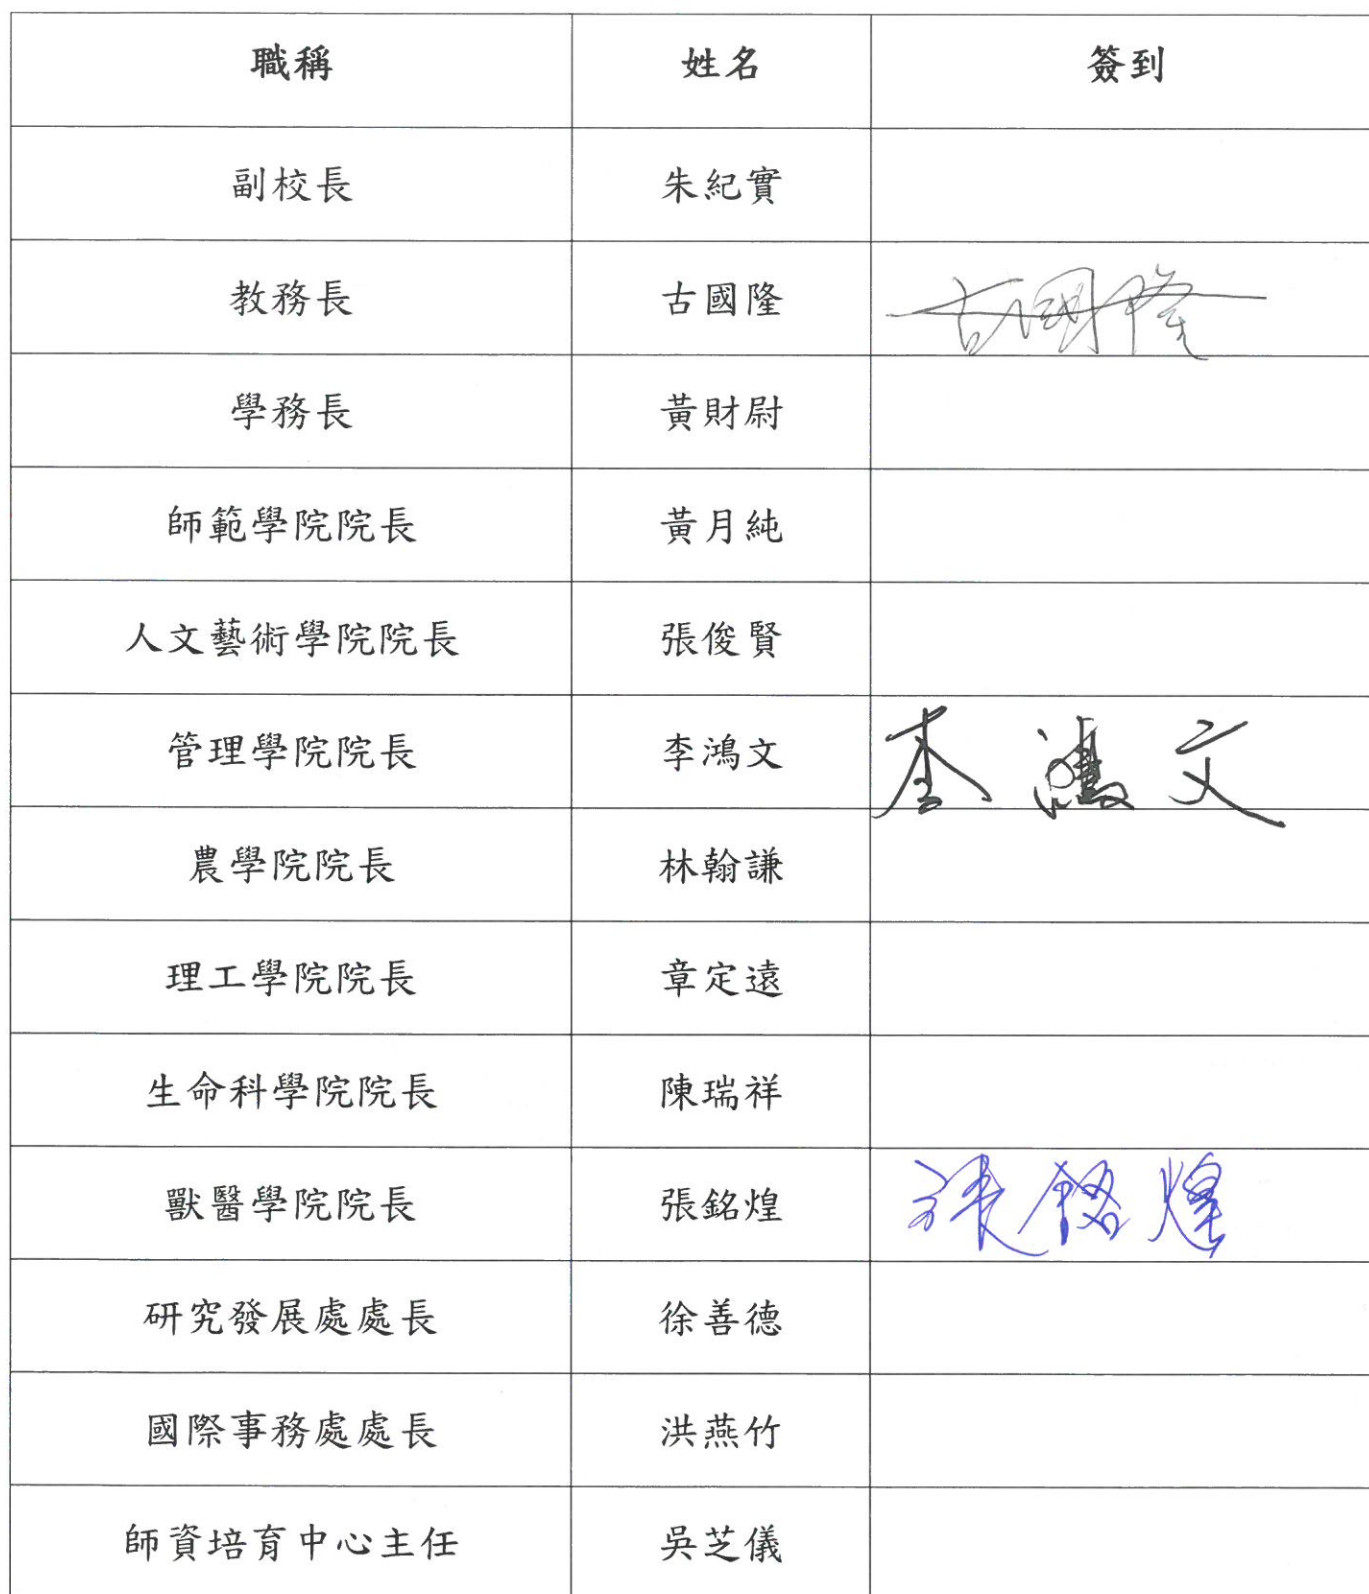 職稱 姓名 簽到
副校長 朱紀實
教務長 古國隆 古國隆
學務長 黃財尉
師範學院院長 黃月純
人文藝術學院院長 張俊賢
管理學院院長 李鴻文 李鴻文
農學院院長 林翰謙
理工學院院長 章定遠
生命科學院院長 陳瑞祥
獸醫學院院長 張銘煌 張銘煌
研究發展處處長 徐善德
國際事務處處長 洪燕竹
師資培育中心主任 吳芝儀